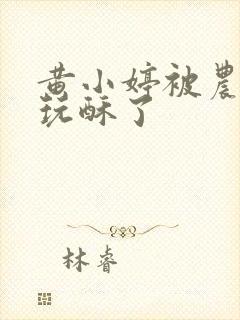 黄小婷被農
玩酥了
林睿